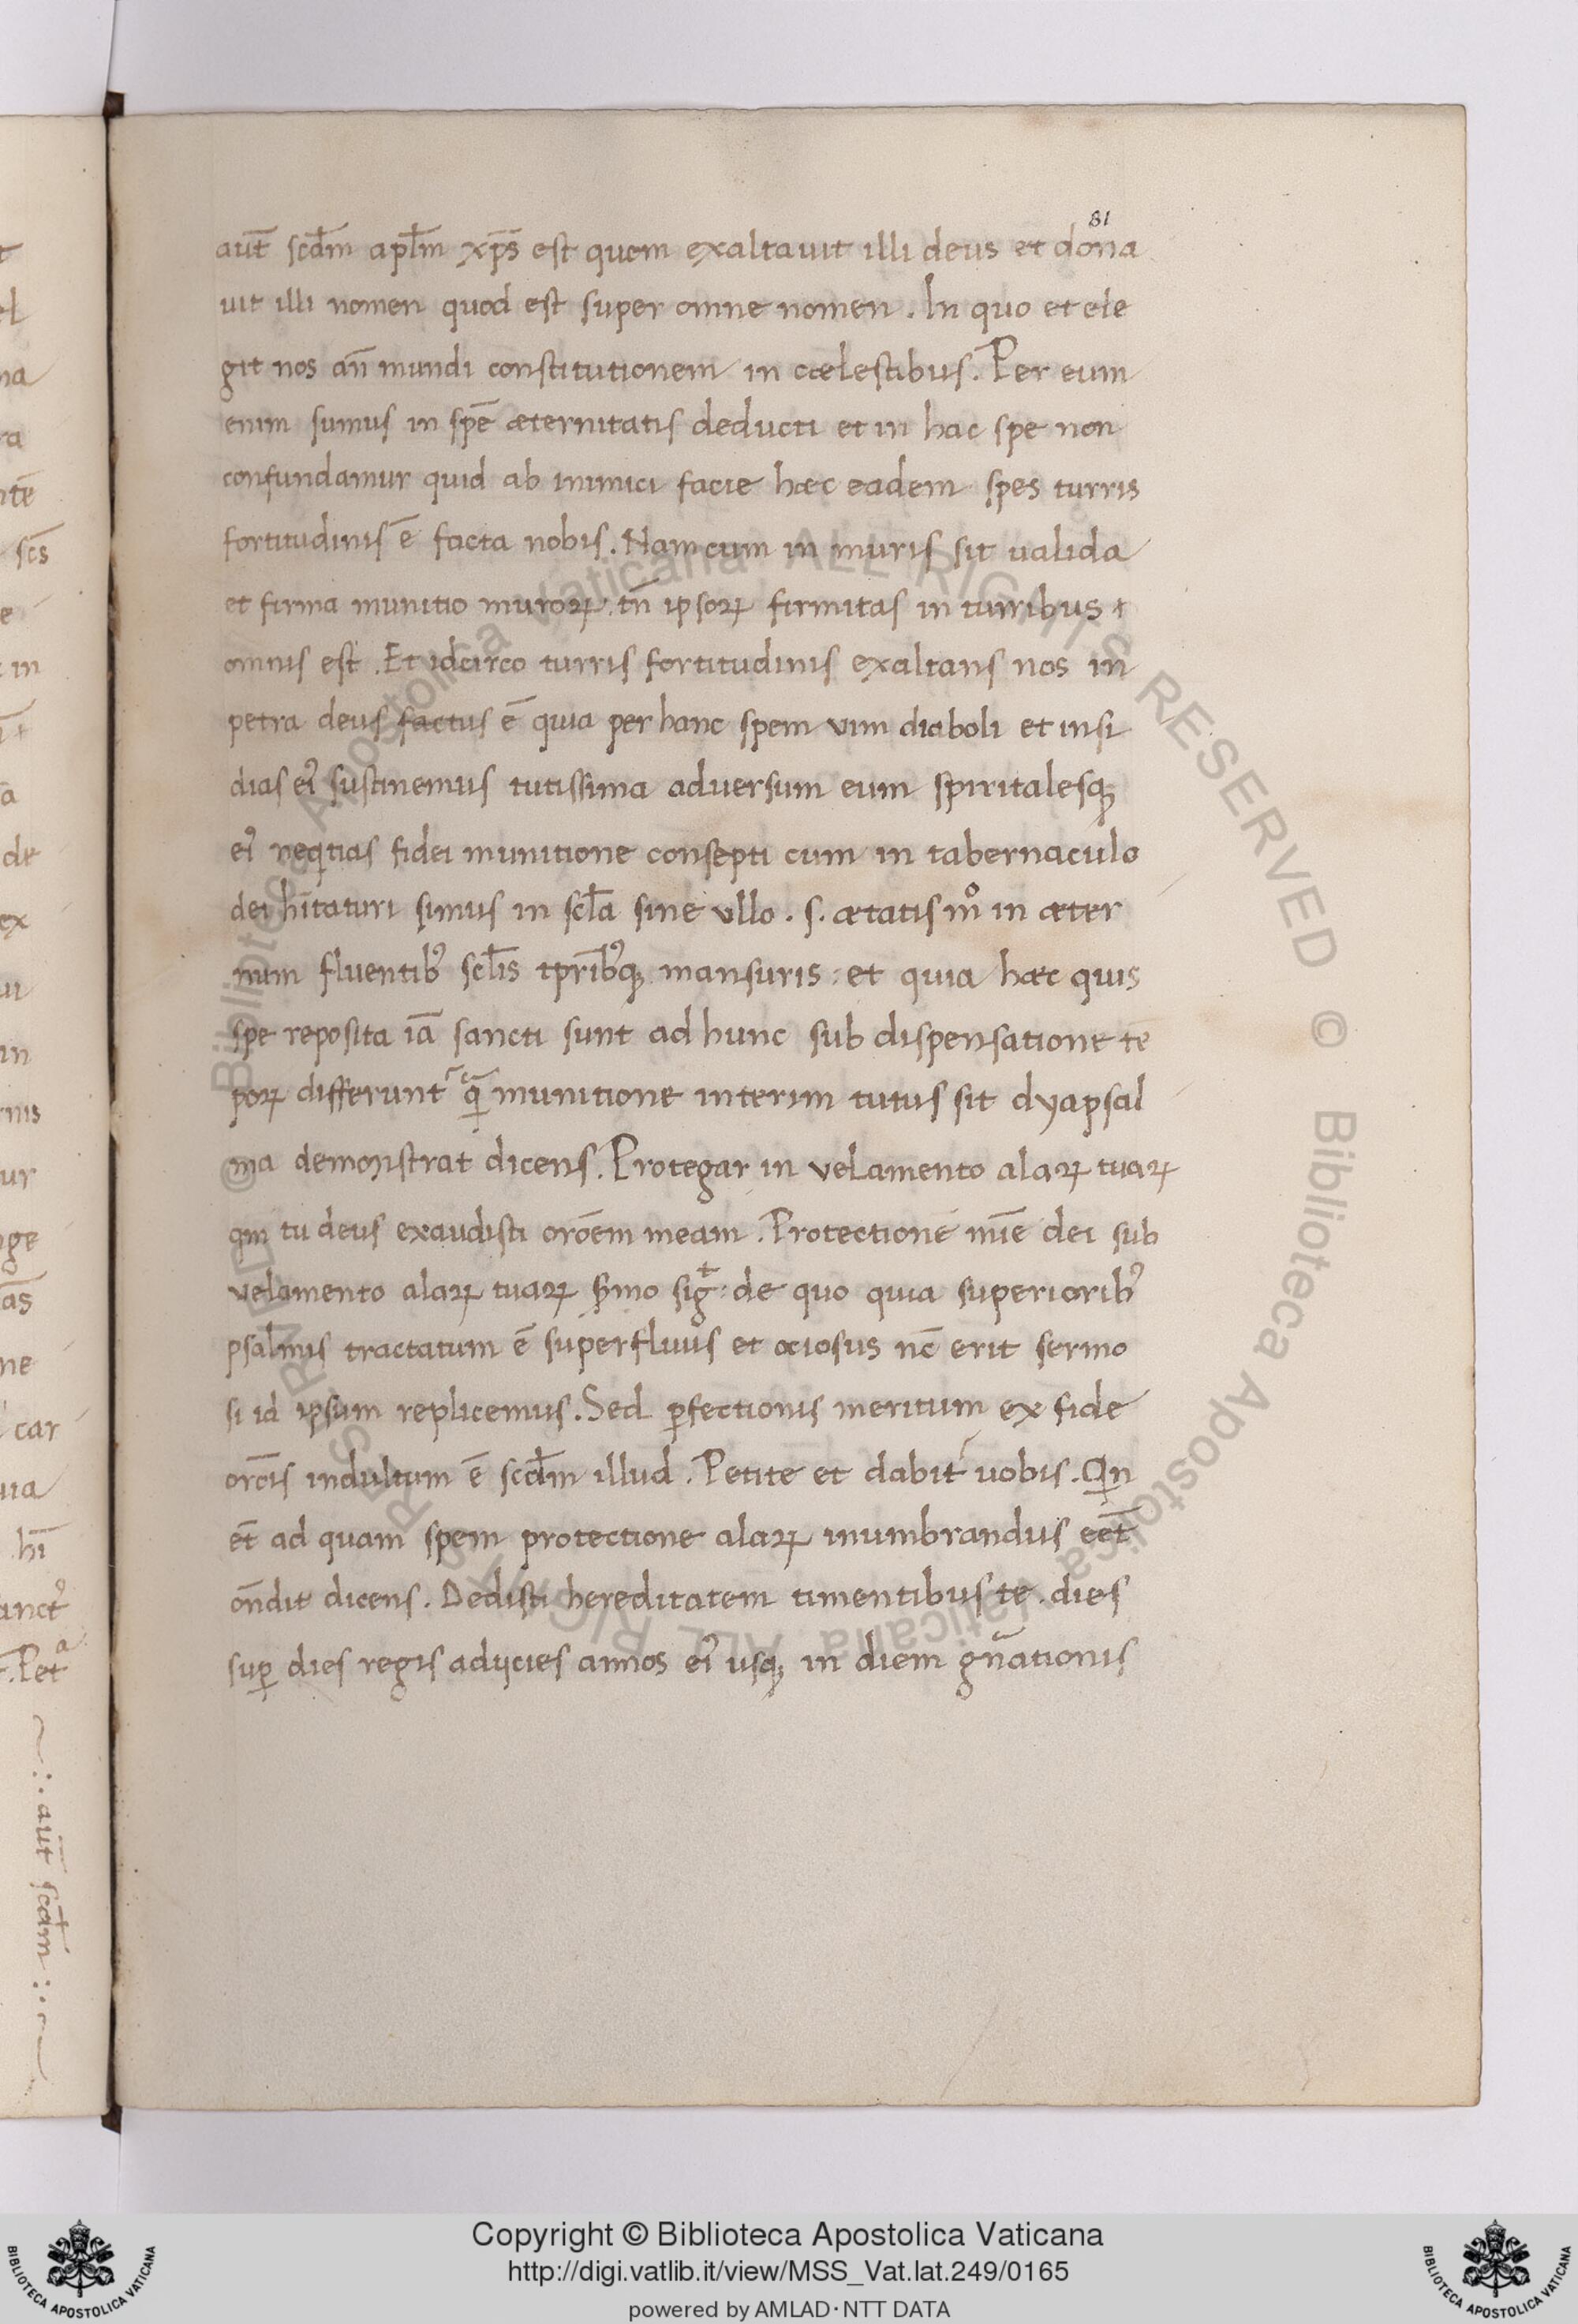 81
aut̄ scdm̄ aplm̄ xp̄s est quem exaltauit illi deus et dona
uit illi nomen quod est super omne nomen. In quo et ele
git nos an̄ mundi constitutionem in cœlestibus. Per eum
enim sumus in spē æternitatis deducti et in hac spe non
confundamur quid ab inimici facie hæc eadem spes turris
fortitudinis ē facta nobis. Nam cum in muris sit ualida
et firma munitio muroꝝ. tn̄ ipsoꝝ firmitas in turribus
omnis est. Et idcirco turris fortitudinis exaltans nos in
petra deus factus ē quia per hanc spem vim diaboli et insi
dias ei᾽ sustinemus tutissima adversum eum spiritalesqꝫ
ei᾽ neqtias fidei munitione consepti cum in tabernaculo
dei hītaturi simus in scl̄a sine vllo. s. ætatis mº in æter
num fluentib᾽ scl̄is tp̄rib᾽qꝫ mansuris: et quia hæc quis
spe reposita iā sancti sunt ad hunc sub dispensatione tē
poꝝ differunt᾽ q̄ munitione interim tutus sit dyapsal
ma demonstrat dicens. Protegar in velamento alaꝝ tuaꝝ
qm̄ tu deus exaudisti orōem meam. Protectione mīe dei sub
velamento alaꝝ tuaꝝ s̄mo siḡt: de quo quia superiorib᾽
psalmis tractatum ē superfluus et ociosus nc̄ erit sermo
si id ipsum replicemus. Sed ꝑfectionis meritum ex fide
orōis indultum ē scdm̄ illud. Petite et dabit᾽ uobis. Qn
et̄ ad quam spem protectione alaꝝ inumbrandus eet̄
on̄dit dicens. Dedisti hereditatem timentibus te. dies
suꝑ dies regis adijcies annos ei᾽ usqꝫ in diem gn̄ationis
aut̄ scdm̄
Copyright © Biblioteca Apostolica Vaticana
http://digi.vatlib.it/view/MSS_Vat.lat.249/0165
powered by AMLAD·NTT DATA
BIBLIOTECA APOSTOLICA VATICANA
BIBLIOTECA APOSTOLICA VATICANA